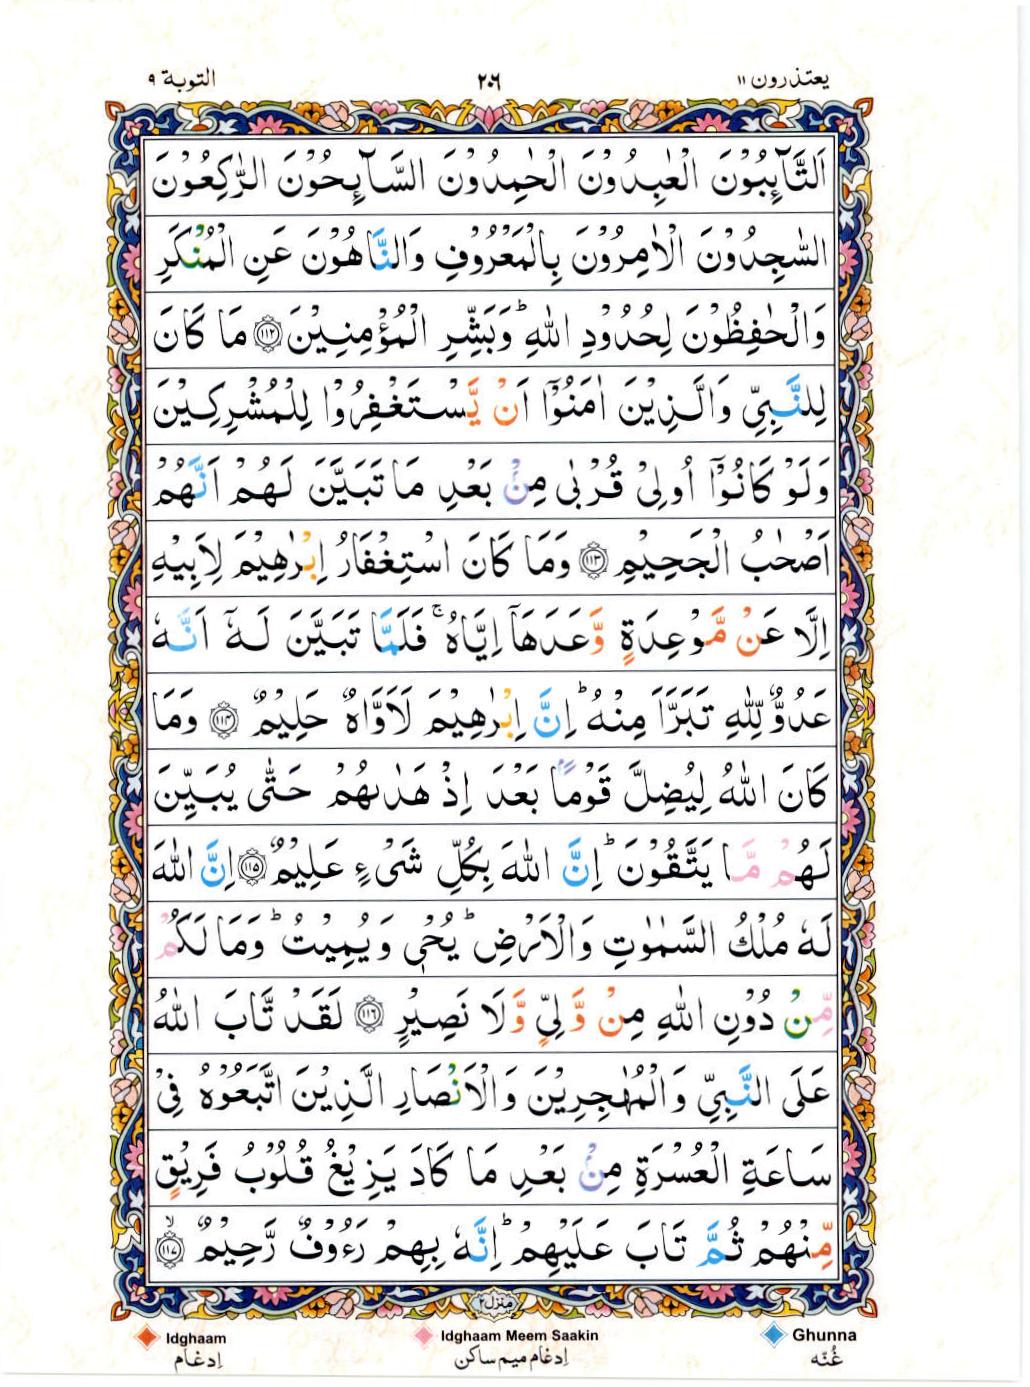 التوبة ٩ ٢٠٦ يعتذرون ١١
اَلتَّآىِٕبُوْنَ الْعٰبِدُوْنَ الْحٰمِدُوْنَ السَّآىِٕحُوْنَ الرّٰكِعُوْنَ
السّٰجِدُوْنَ الْاٰمِرُوْنَ بِالْمَعْرُوْفِ وَالنَّاهُوْنَ عَنِ الْمُنْكَرِ
وَالْحٰفِظُوْنَ لِحُدُوْدِ اللّٰهِ ؕ وَبَشِّرِ الْمُؤْمِنِيْنَ ﴿۱۱۲﴾ مَا كَانَ
لِلنَّبِيِّ وَالَّذِيْنَ اٰمَنُوْۤا اَنْ يَّسْتَغْفِرُوْا لِلْمُشْرِكِيْنَ
وَلَوْ كَانُوْۤا اُولِيْ قُرْبٰى مِنْۢ بَعْدِ مَا تَبَيَّنَ لَهُمْ اَنَّهُمْ
اَصْحٰبُ الْجَحِيْمِ ﴿۱۱۳﴾ وَمَا كَانَ اسْتِغْفَارُ اِبْرٰهِيْمَ لِاَبِيْهِ
اِلَّا عَنْ مَّوْعِدَةٍ وَّعَدَهَاۤ اِيَّاهُ ۚ فَلَمَّا تَبَيَّنَ لَهٗۤ اَنَّهٗ
عَدُوٌّ لِّلّٰهِ تَبَرَّاَ مِنْهُ ؕ اِنَّ اِبْرٰهِيْمَ لَاَوَّاهٌ حَلِيْمٌ ﴿۱۱۴﴾ وَمَا
كَانَ اللّٰهُ لِيُضِلَّ قَوْمًۢا بَعْدَ اِذْ هَدٰىهُمْ حَتّٰى يُبَيِّنَ
لَهُمْ مَّا يَتَّقُوْنَ ؕ اِنَّ اللّٰهَ بِكُلِّ شَيْءٍ عَلِيْمٌ ﴿۱۱۵﴾ اِنَّ اللّٰهَ
لَهٗ مُلْكُ السَّمٰوٰتِ وَالْاَرْضِ ؕ يُحْيٖ وَيُمِيْتُ ؕ وَمَا لَكُمْ
مِّنْ دُوْنِ اللّٰهِ مِنْ وَّلِيٍّ وَّلَا نَصِيْرٍ ﴿۱۱۶﴾ لَقَدْ تَّابَ اللّٰهُ
عَلَى النَّبِيِّ وَالْمُهٰجِرِيْنَ وَالْاَنْصَارِ الَّذِيْنَ اتَّبَعُوْهُ فِيْ
سَاعَةِ الْعُسْرَةِ مِنْۢ بَعْدِ مَا كَادَ يَزِيْغُ قُلُوْبُ فَرِيْقٍ
مِّنْهُمْ ثُمَّ تَابَ عَلَيْهِمْ ؕ اِنَّهٗ بِهِمْ رَءُوْفٌ رَّحِيْمٌ ۙ﴿۱۱۷﴾
منزل ٢
Idghaam Idghaam Meem Saakin Ghunna
اِدغام اِدغام میم ساکن غُنّه